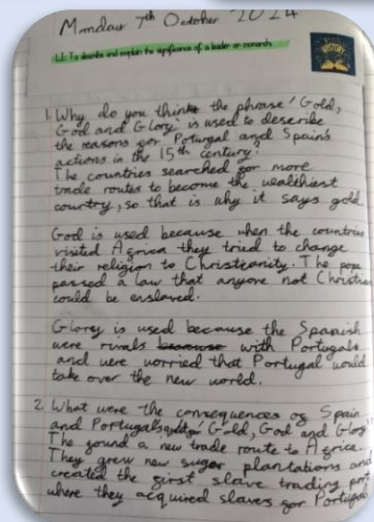 Monday 7th October 2024
L.I: To describe and explain the significance of a leader or monarch.
HISTORY
1. Why do you think the phrase 'Gold,
God and Glory' is used to describe
the reasons for Poturgal and Spain's
actions in the 15th century?
The countries searched for more
trade routes to become the wealthiest
country, so that is why it says gold.
God is used because when the countries
visited Africa they tried to change
their religion to Christianity. The pope
passed a law that anyone not Christian
could be enslaved.
Glorey is used because the Spanish
were rivals because with Portugals
and were worried that Portugal would
take over the new world.
2. What were the consequences of Spain
and Portugals 'Gold, God and Glory'
The found a new trade route to Africa.
They grew new sugar plantations and
created the first slave trading
where they acquired slavers for Portugal